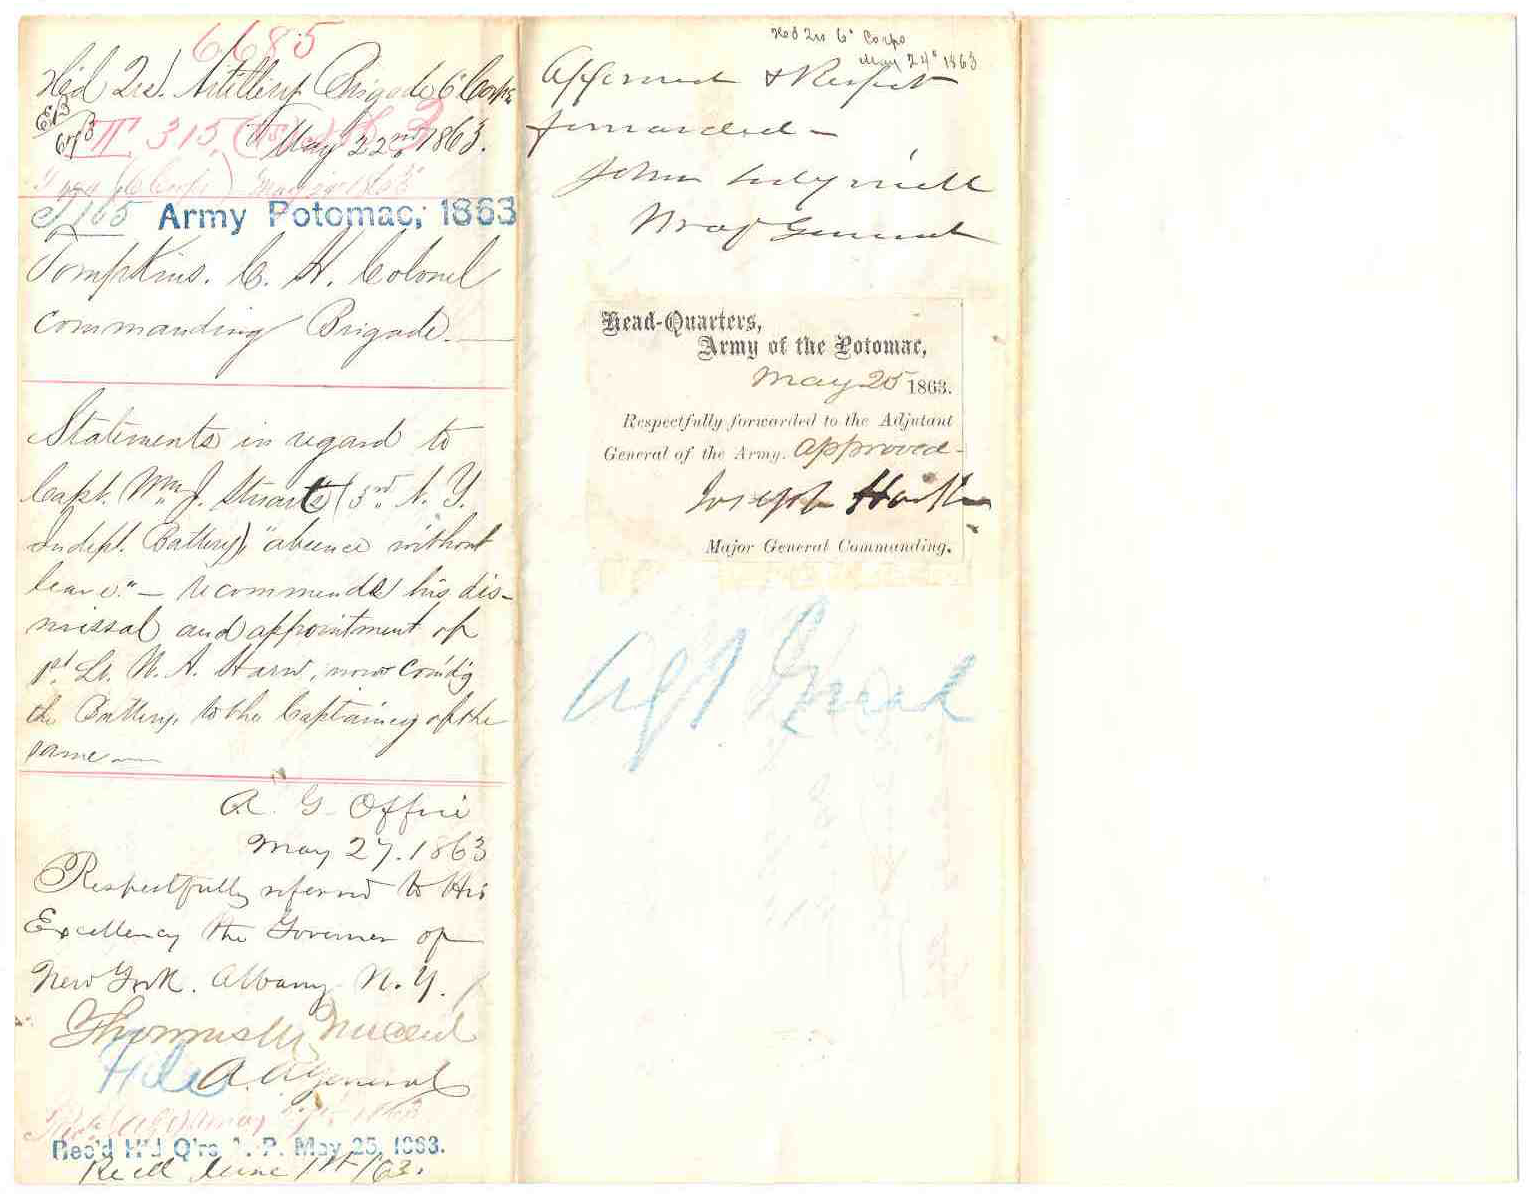 6685
Hd Qrs. Artillery Brigade 6 Corps
May 22nd 1863.
T 315
T 165 Army Potomac, 1863
Tompkins. C. H. Colonel
Commanding Brigade.
Statements in regard to
Capt. Wm. J. Stuart's (3rd. N. Y.
Indept. Battery), "absence without
leave." — recommends his dis-
missal and appointment of
1st Lt. W. A. Harn, now com'd'g
the Battery, to the Captaincy of the
same —
A. G. Office
May 27. 1863
Respectfully referred to His
Excellency the Governor of
New York. Albany N. Y.
Thomas M. Vincent
A. A. General
File
Rec'd H'd Q'rs A. P. May 25, 1863.
Recd June 1st /63.
Hd Qrs 6" Corps
May 24" 1863
Approved & Respect
forwarded —
John Sedgwick
Maj General
Head-Quarters,
Army of the Potomac,
May 25 1863.
Respectfully forwarded to the Adjutant
General of the Army. approved -
Joseph Hooker
Major General Commanding.